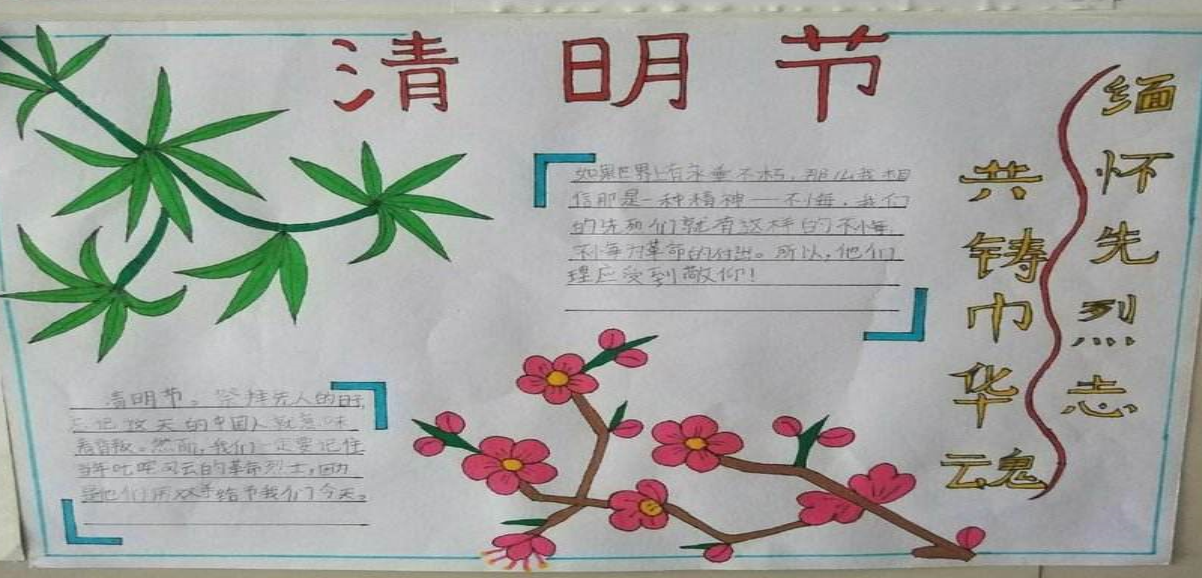 清明节
如果世界上有永垂不朽,那么我相
信那是一种精神——不悔,我们
的先烈们就有这样的不悔,
不悔为革命的付出。所以,他们
理应受到敬仰!
缅怀先烈志
共铸巾华魂
清明节。祭拜先人的日子,
忘记这天的中国人就意味
着背叛。然而,我们一定要记住
当年叱咤风云的革命烈士,因为
是他们用双手给予我们今天。